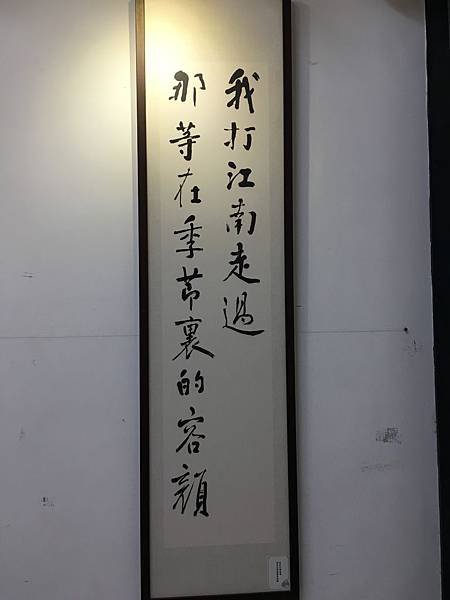 我打江南走過
那等在季節裏的容顏